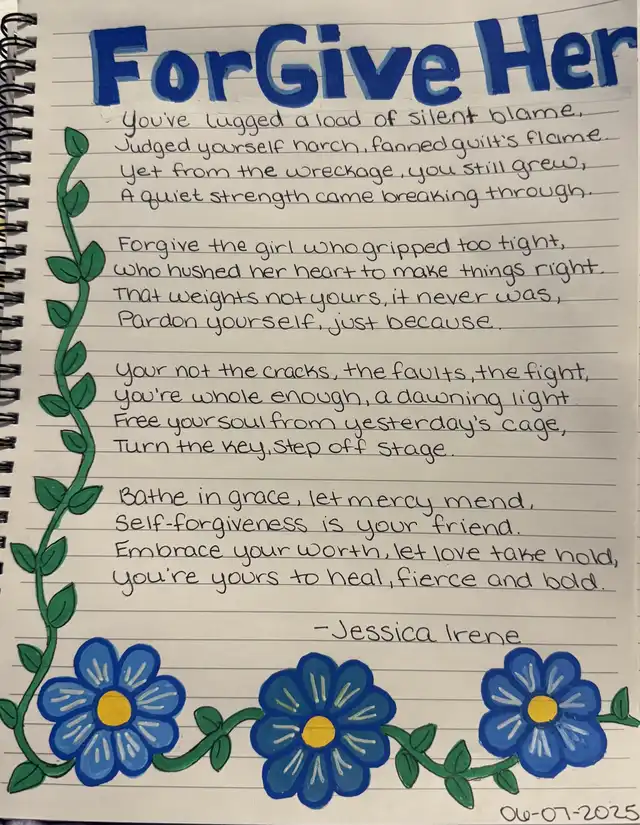 ForGive Her
You've lugged a load of silent blame,
Judged yourself harch, fanned guilt's flame.
Yet from the wreckage, you still grew,
A quiet strength came breaking through.
Forgive the girl who gripped too tight,
who hushed her heart to make things right.
That weights not yours, it never was,
Pardon yourself, just because.
Your not the cracks, the faults, the fight,
you're whole enough, a dawning light
Free your soul from yesterday's cage,
Turn the key, step off stage.
Bathe in grace, let mercy mend,
Self-forgiveness is your friend.
Embrace your worth, let love take hold,
you're yours to heal, fierce and bold.
-Jessica Irene
06-07-2025